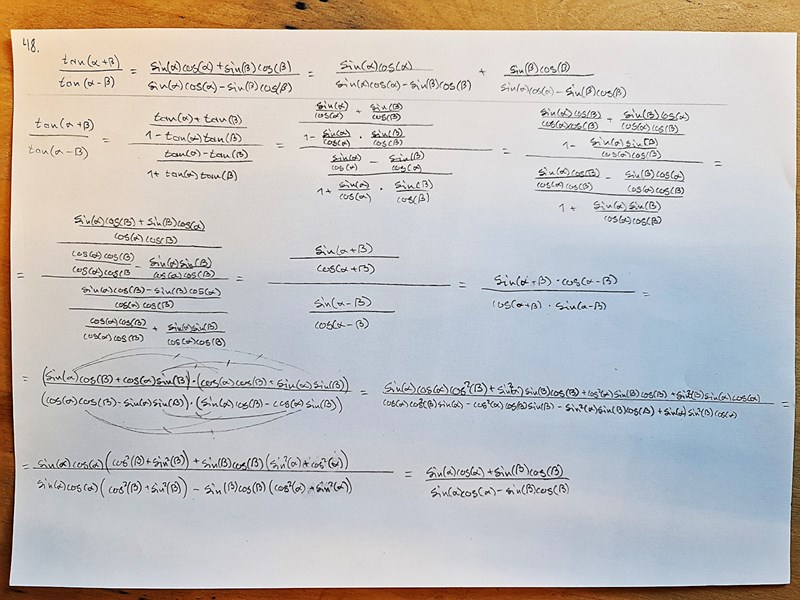 48.
tan(α+β) / tan(α-β) = (sin(α)cos(α) + sin(β)cos(β)) / (sin(α)cos(α) - sin(β)cos(β)) = sin(α)cos(α) / (sin(α)cos(α) - sin(β)cos(β)) + sin(β)cos(β) / (sin(α)cos(α) - sin(β)cos(β))
tan(α+β) / tan(α-β) = ((tan(α) + tan(β)) / (1 - tan(α)tan(β))) / ((tan(α) - tan(β)) / (1 + tan(α)tan(β))) = ((sin(α)/cos(α) + sin(β)/cos(β)) / (1 - sin(α)/cos(α) · sin(β)/cos(β))) / ((sin(α)/cos(α) - sin(β)/cos(α)) / (1 + sin(α)/cos(α) · sin(β)/cos(β))) = ((sin(α)cos(β)/cos(α)cos(β) + sin(β)cos(α)/cos(α)cos(β)) / (1 - sin(α)sin(β)/cos(α)cos(β))) / ((sin(α)cos(β)/cos(α)cos(β) - sin(β)cos(α)/cos(α)cos(β)) / (1 + sin(α)sin(β)/cos(α)cos(β))) =
= (((sin(α)cos(β) + sin(β)cos(α)) / cos(α)cos(β)) / (cos(α)cos(β)/cos(α)cos(β) - sin(α)sin(β)/cos(α)cos(β))) / (((sin(α)cos(β) - sin(β)cos(α)) / cos(α)cos(β)) / (cos(α)cos(β)/cos(α)cos(β) + sin(α)sin(β)/cos(α)cos(β))) = (sin(α+β) / cos(α+β)) / (sin(α-β) / cos(α-β)) = (sin(α+β) · cos(α-β)) / (cos(α+β) · sin(α-β)) =
= ((sin(α)cos(β) + cos(α)sin(β)) · (cos(α)cos(β) + sin(α)sin(β))) / ((cos(α)cos(β) - sin(α)sin(β)) · (sin(α)cos(β) - cos(α)sin(β))) = (sin(α)cos(α)cos²(β) + sin²(α)sin(β)cos(β) + cos²(α)sin(β)cos(β) + sin²(β)sin(α)cos(α)) / (cos(α)cos²(β)sin(α) - cos²(α)cos(β)sin(β) - sin²(α)sin(β)cos(β) + sin(α)sin²(β)cos(α)) =
= (sin(α)cos(α)(cos²(β) + sin²(β)) + sin(β)cos(β)(sin²(α) + cos²(α))) / (sin(α)cos(α)(cos²(β) + sin²(β)) - sin(β)cos(β)(cos²(α) + sin²(α))) = (sin(α)cos(α) + sin(β)cos(β)) / (sin(α)cos(α) - sin(β)cos(β))